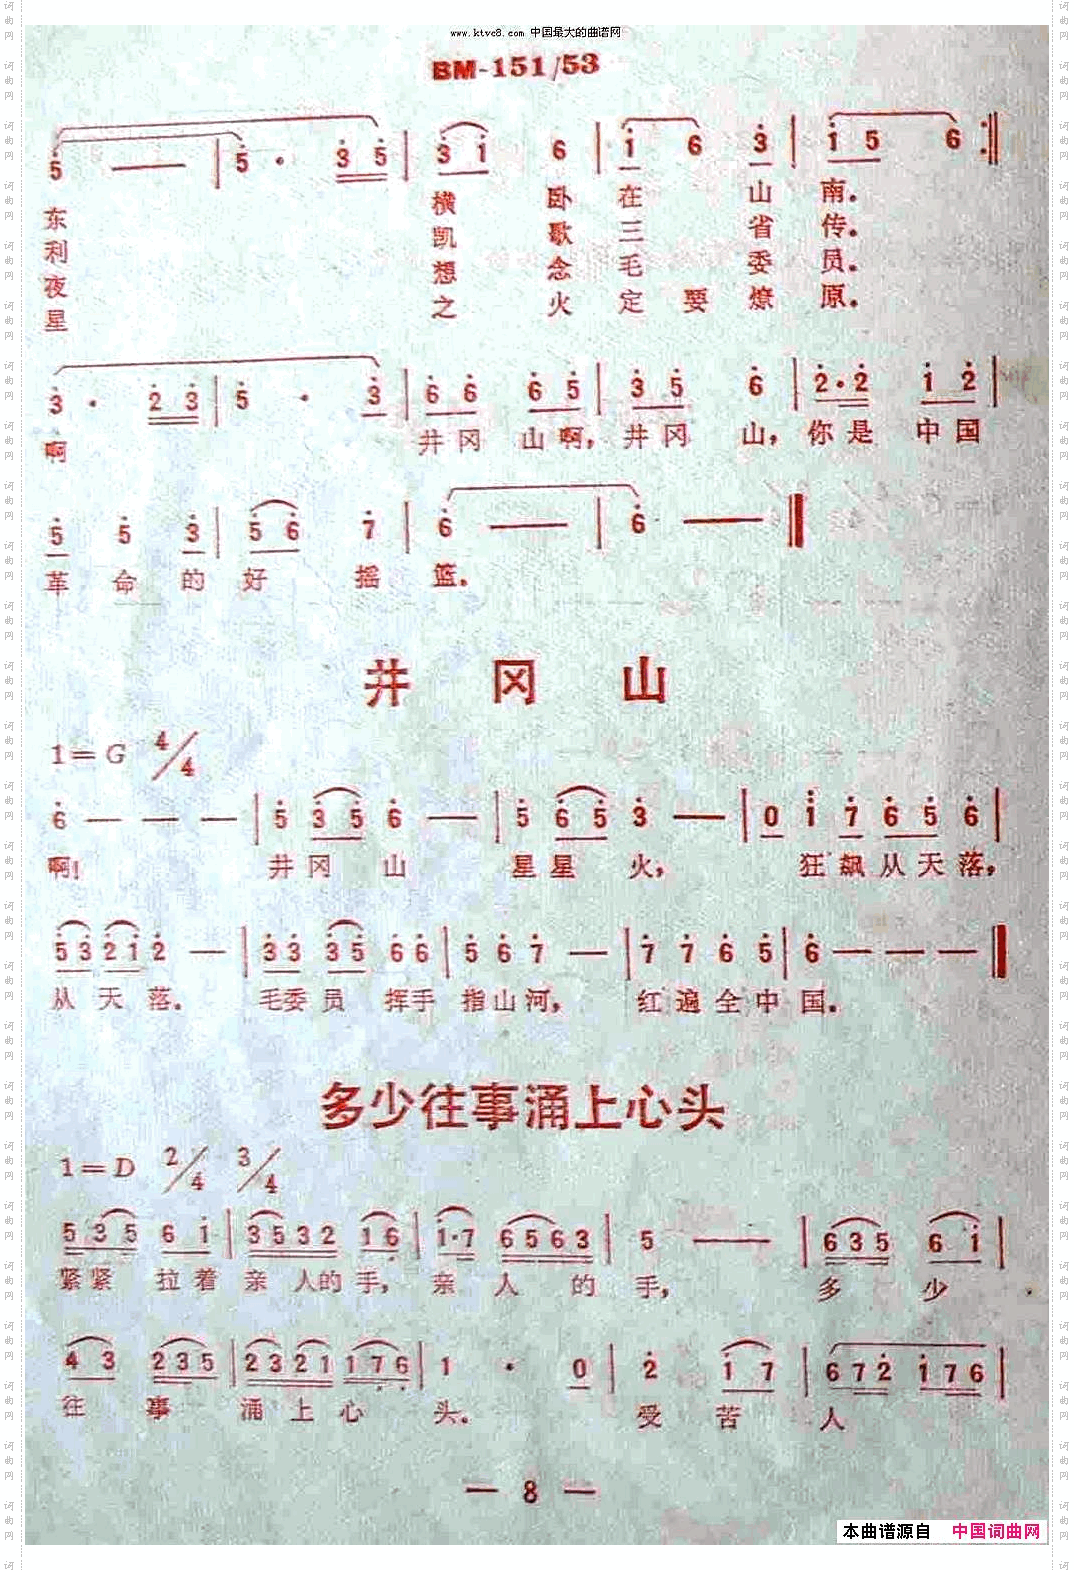 www.ktvc8.com 中国最大的曲谱网
BM-151/53
5 — | 5 · 3 5 | 3 1 6 | 1 6 3 | 1 5 6 :‖
东 横 卧 在 山 南。
利 凯 歌 三 省 传。
夜 想 念 毛 委 员。
星 之 火 定 要 燎 原。
3 · 2 3 | 5 · 3 | 6 6 6 5 | 3 5 6 | 2 · 2 1 2 |
啊 井 冈 山 啊, 井 冈 山, 你 是 中 国
5 5 3 | 5 6 7 | 6 — | 6 — ‖
革 命 的 好 摇 篮。
井 冈 山
1=G 4/4
6 — — — | 5 3 5 6 — | 5 6 5 3 — | 0 1 7 6 5 6 |
啊! 井 冈 山 星 星 火, 狂 飙 从 天 落,
5 3 2 1 2 — | 3 3 3 5 6 6 | 5 6 7 — | 7 7 6 5 | 6 — — — ‖
从 天 落。 毛 委 员 挥 手 指 山 河, 红 遍 全 中 国。
多少往事涌上心头
1=D 2/4 3/4
5 3 5 6 1 | 3 5 3 2 1 6 | 1 · 7 6 5 6 3 | 5 — | 6 3 5 6 1 |
紧 紧 拉 着 亲 人 的 手, 亲 人 的 手, 多 少
4 3 2 3 5 | 2 3 2 1 1 7 6 | 1 · 0 | 2 1 7 | 6 7 2 1 7 6 |
往 事 涌 上 心 头。 受 苦 人
— 8 —
本曲谱源自 中国词曲网
词曲网